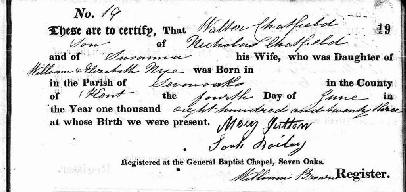 No. 19
These are to certify, That Walter Chatfield 19
Son of Nicholas Chatfield
and of Susanna his Wife, who was Daughter of
William & Elizabeth Nye was Born in
in the Parish of Sevenoaks in the County
of Kent the fourth Day of June in
the Year one thousand eight hundred and twenty three
at whose Birth we were present. Mercy
Sarah
Registered at the General Baptist Chapel, Seven Oaks.
William Register.